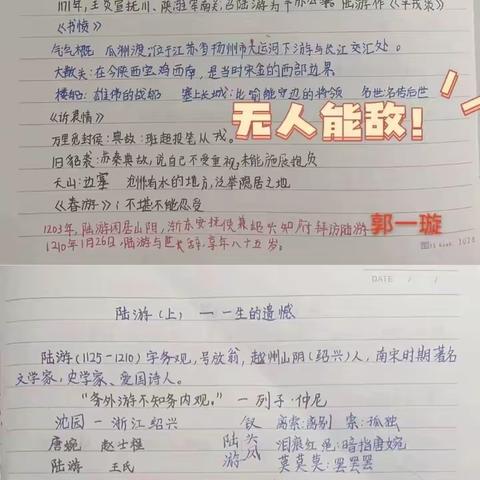 1171年,王炎宣抚川、陕,驻军南郑,召陆游为干办公事,陆游作《平戎策》
《书愤》
气:气概 瓜洲渡:位于江苏省扬州市大运河下游与长江交汇处。
大散关:在今陕西宝鸡西南,是当时宋金的西部边界
楼船:雄伟的战船 塞上长城:比喻能守边的将领 名世:名传后世
《诉衷情》
万里觅封候:典故:班超投笔从戎。
无人能敌!
旧貂裘:苏秦典故,说自己不受重视,未能施展抱负
天山:边塞 沧州:有水的地方,泛举隐居之地
《春游》:不堪:不能忍受
1203年,陆游闲居山阴,浙东安抚使兼绍兴知府拜访陆游
郭一璇
1210年1月26日,陆游与世长辞,享年八十五岁。
DATE / /
陆游(上) — 一生的遗憾
陆游(1125-1210)字务观,号放翁,越州山阴(绍兴)人,南宋时期著名
文学家,史学家、爱国诗人。
"务外游不知务内观。" — 列子·仲尼
沈园 — 浙江绍兴 钗 离索:离别 索:孤独
唐婉 赵士程 陆 头 泪痕红浥:暗指唐婉
陆游 王氏 游 凤 莫莫莫:罢罢罢